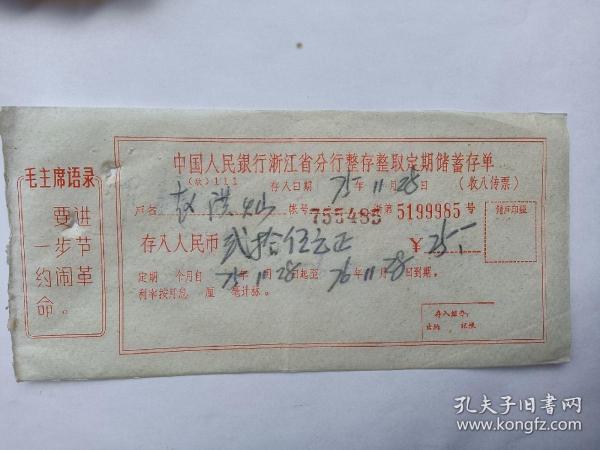 毛主席语录
要进
一步节
约闹革
命。
中国人民银行浙江省分行整存整取定期储蓄存单
(放)111 存入日期 75年11月28日 (收入传票)
户名 赵洪灿 帐号 755485 浙第5199985号
存入人民币 贰拾伍元正 ¥25.
储户印鉴
定期 个月自75年11月28日起至76年11月28日到期。
利率按月息 厘 毫计标。
存入经办:
出纳 记帐
孔夫子旧书网
www.kongfz.com